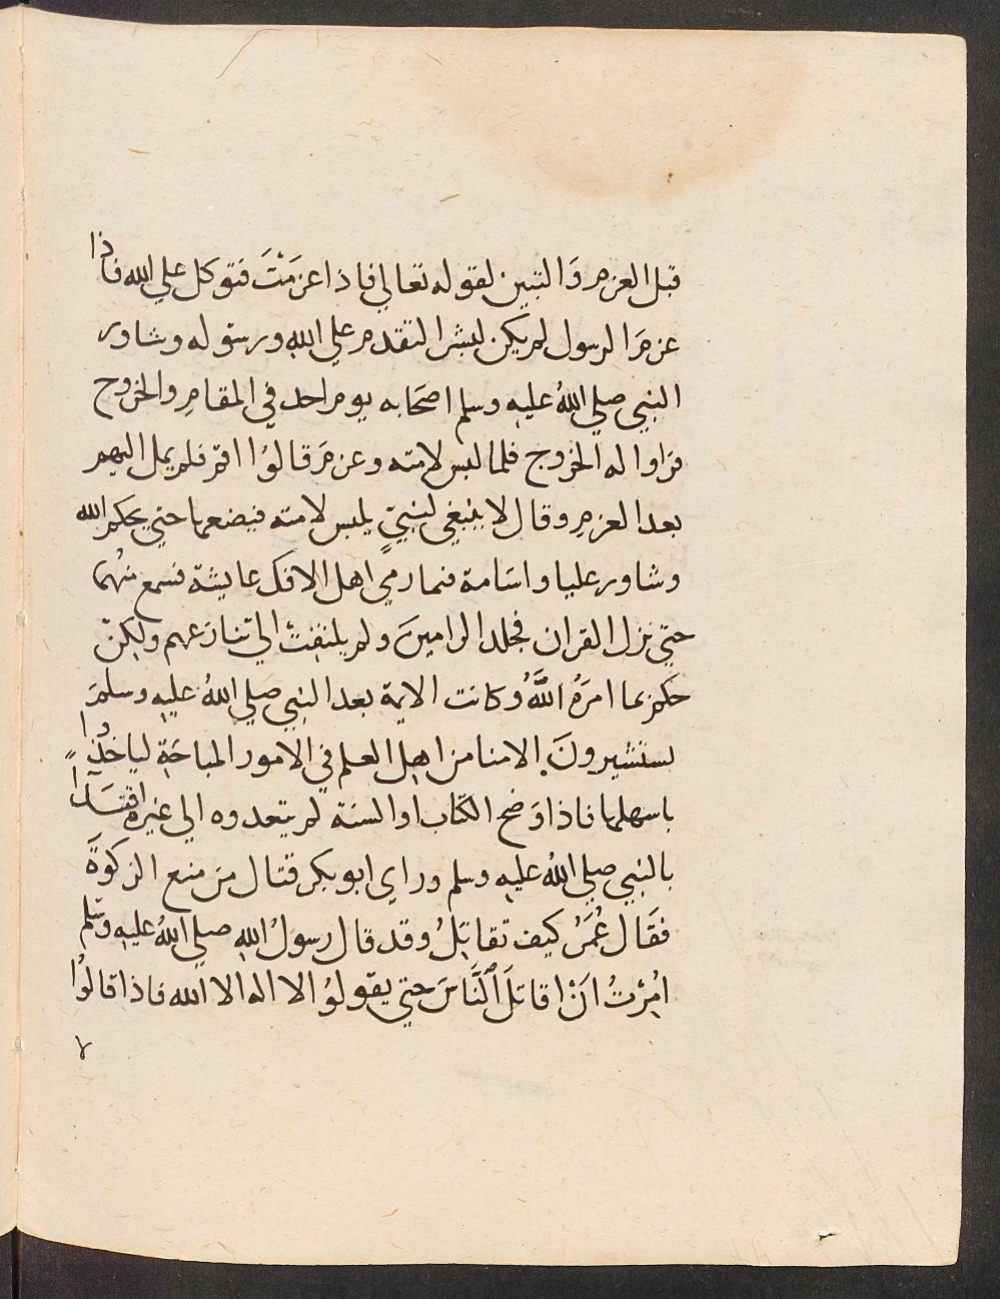 قبل العزم وَالتبين لقوله تعالي فاذا عزمْتَ فتوكل علي الله فاذا
عزمَ الرسول لم يكن لبشر التقدم علي الله ورسوله وشاور
النبي صلي اللهُ عليه وسلم اصحَابه يوم احد في المقامِ والخروج
فرَاوا له الخروج فلما لبس لامته وعزمَ قالوُا اقم فلم يمل اليهم
بعد العزمِ وقال لا ينبغي لنبيٍّ يلبس لامته فيضعها حتي يحكم الله
وشاور عليا واسَامة فيما رميٰ اهل الافك عايشة فسمع منهُما
حتي نزل القران فجلد الرامينَ ولم يلتفتْ الي تنازعهم ولكنْ
حكم بما امرَهُ اللَّهُ وكانت الايمة بعد النبي صلي اللهُ عليه وسلمَ
يستشيرونَ الامنا من اهل العلم في الامور المباحَة لياخُذوا
باسهلها فاذا وَضح الكتاب او السنة لم يتعدوه الي غيره اقتدَآءً
بالنبي صلي اللهُ عليه وسلم وراي ابو بكر قتال من منع الزكوةَ
فقَال عُمَرُ كيف تقاتِلُ وقد قال رسولُ اللهِ صلي اللهُ عليه وسلم
امُرْتُ اَنْ اقاتلَ اَلنَّاسَ حتي يقولوُا لا اله الا الله فاذا قالوُا
لا